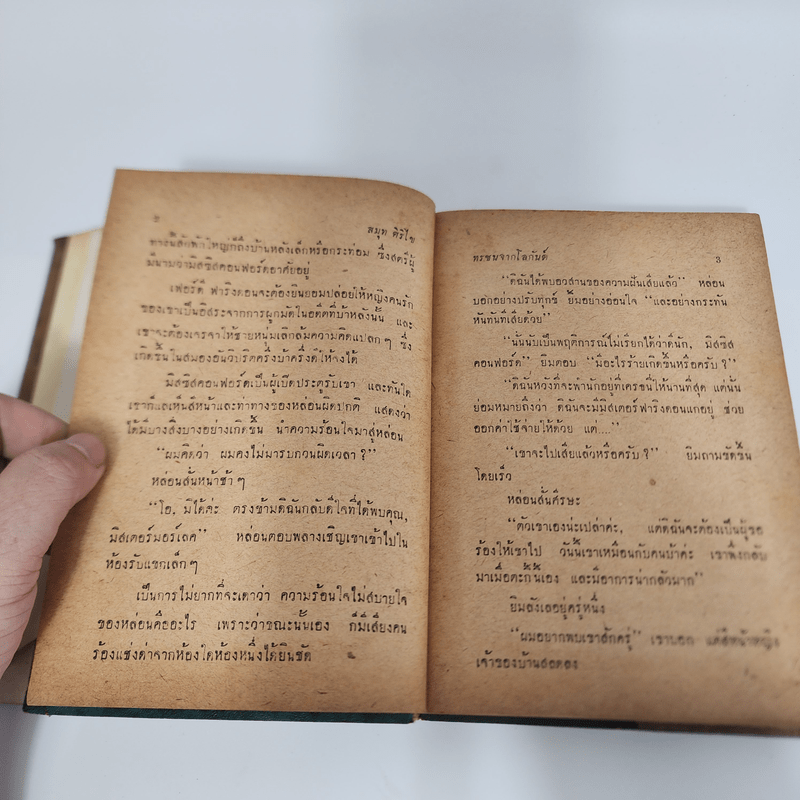 ๒
สมุท ศิริไข
ทาง นี้สักห้าใหญ่ก็ถึงบ้านหลังเล็กหรือกระท่อม ซึ่งสตรีผู้
มีนามว่ามิสซิสคอนฟอร์ดอาศัยอยู่
เฟอร์ดี ฟาริงดอนจะต้องยินยอมปล่อยให้หญิงคนรัก
ของเขาเป็นอิสระจากการผูกมัดในอดีตที่บ้าหลังนั้น และ
เขาจะต้องเจรจาให้ชายหนุ่มเลิกล้มความคิดแปลก ๆ ซึ่ง
เกิดขึ้นในสมองอันวิปริตครึ่งบ้าครึ่งดีให้จงได้
มิสซิสคอนฟอร์ดเป็นผู้เปิดประตูรับเขา และทันใด
เขาก็แลเห็นสีหน้าและท่าทางของหล่อนผิดปกติ แสดงว่า
ได้มีบางสิ่งบางอย่างเกิดขึ้น นำความร้อนใจมาสู่หล่อน
“ผมคิดว่า ผมคงไม่มารบกวนผิดเวลา ?”
หล่อนสั่นหน้าช้า ๆ
“โอ, มิได้ค่ะ ตรงข้ามดิฉันกลับดีใจที่ได้พบคุณ,
มิสเตอร์มอร์เลค” หล่อนตอบพลางเชิญเขาเข้าไปใน
ห้องรับแขกเล็ก ๆ
เป็นการไม่ยากที่จะเดาว่า ความร้อนใจไม่สบายใจ
ของหล่อนคืออะไร เพราะว่าขณะนั้นเอง ก็มีเสียงคน
ร้องแช่งด่าจากห้องใดห้องหนึ่งได้ยินชัด
ทรชนจากโลกันต์
3
“ดิฉันได้พบอวสานของความฝันเสียแล้ว” หล่อน
บอกอย่างปรับทุกข์ ยิ้มอย่างอ่อนใจ “และอย่างกระทัน
หันทันทีเสียด้วย”
“นั่นนับเป็นพฤติการณ์ไม่เรียกได้ว่าดีนัก, มิสซิส
คอนฟอร์ด” ยิมตอบ “มีอะไรร้ายเกิดขึ้นหรือครับ ?”
“ดิฉันหวังที่จะพำนักอยู่ที่เครชนี้ให้นานที่สุด แต่นั่น
ย่อมหมายถึงว่า ดิฉันจะมีมิสเตอร์ฟาริงดอนแกอยู่ ช่วย
ออกค่าใช้จ่ายให้ด้วย แต่....”
“เขาจะไปเสียแล้วหรือครับ ?” ยิมถามขัดขึ้น
โดยเร็ว
หล่อนสั่นศีรษะ
“ตัวเขาเองน่ะเปล่าค่ะ, แต่ดิฉันจะต้องเป็นผู้ขอ
ร้องให้เขาไป วันนี้เขาเหมือนกับคนบ้าค่ะ เขาพึ่งกลับ
มาเมื่อตะกี้นี้เอง และมีอาการน่ากลัวมาก”
ยิมลังเลอยู่ครู่หนึ่ง
“ผมอยากพบเขาสักครู่” เขาบอก แต่สีหน้าหญิง
เจ้าของบ้านสอดอง